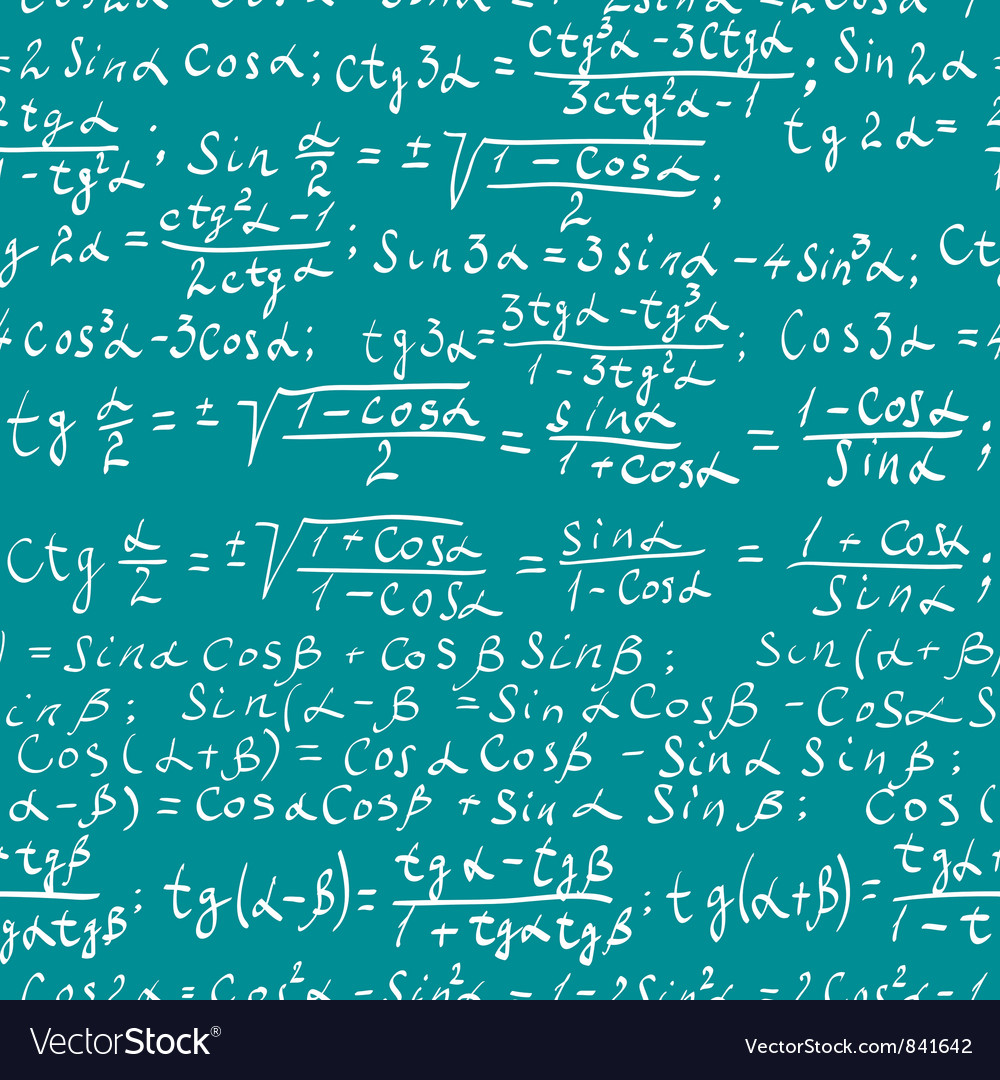 Cos2α = Cos²α - Sin²α = 1 - 2Sin²α = 2Cos²α - 1
=2 Sinα Cosα; ctg3α = (ctg³α - 3Ctgα)/(3ctg²α - 1); Sin2α =
2tgα/(1 - tg²α); Sin α/2 = ±√((1 - Cosα)/2); tg2α = 2
g 2α = (ctg²α - 1)/(2ctgα); Sin3α = 3sinα - 4Sin³α; Ct
4cos³α - 3Cosα; tg3α = (3tgα - tg³α)/(1 - 3tg²α); Cos3α = 4
tg α/2 = ±√((1 - cosα)/2) = sinα/(1 + cosα) = (1 - Cosα)/Sinα;
Ctg α/2 = ±√((1 + Cosα)/(1 - Cosα)) = sinα/(1 - Cosα) = (1 + Cosα)/Sinα;
) = Sinα Cosβ + Cos β Sinβ; Sin(α + β)
inβ; Sin(α - β = Sin α Cosβ - Cosα S
Cos(α + β) = Cos α Cosβ - Sinα Sinβ;
α - β) = Cosα Cosβ + Sin α Sin β; Cos(
+ tgβ/gαtgβ; tg(α - β) = (tgα - tgβ)/(1 + tgαtgβ); tg(α + β) = (tgα +/1 - t
Cos2α = Cos²α - Sin²α = 1 - 2Sin²α = 2Cos²α - 1
VectorStock® VectorStock.com/841642